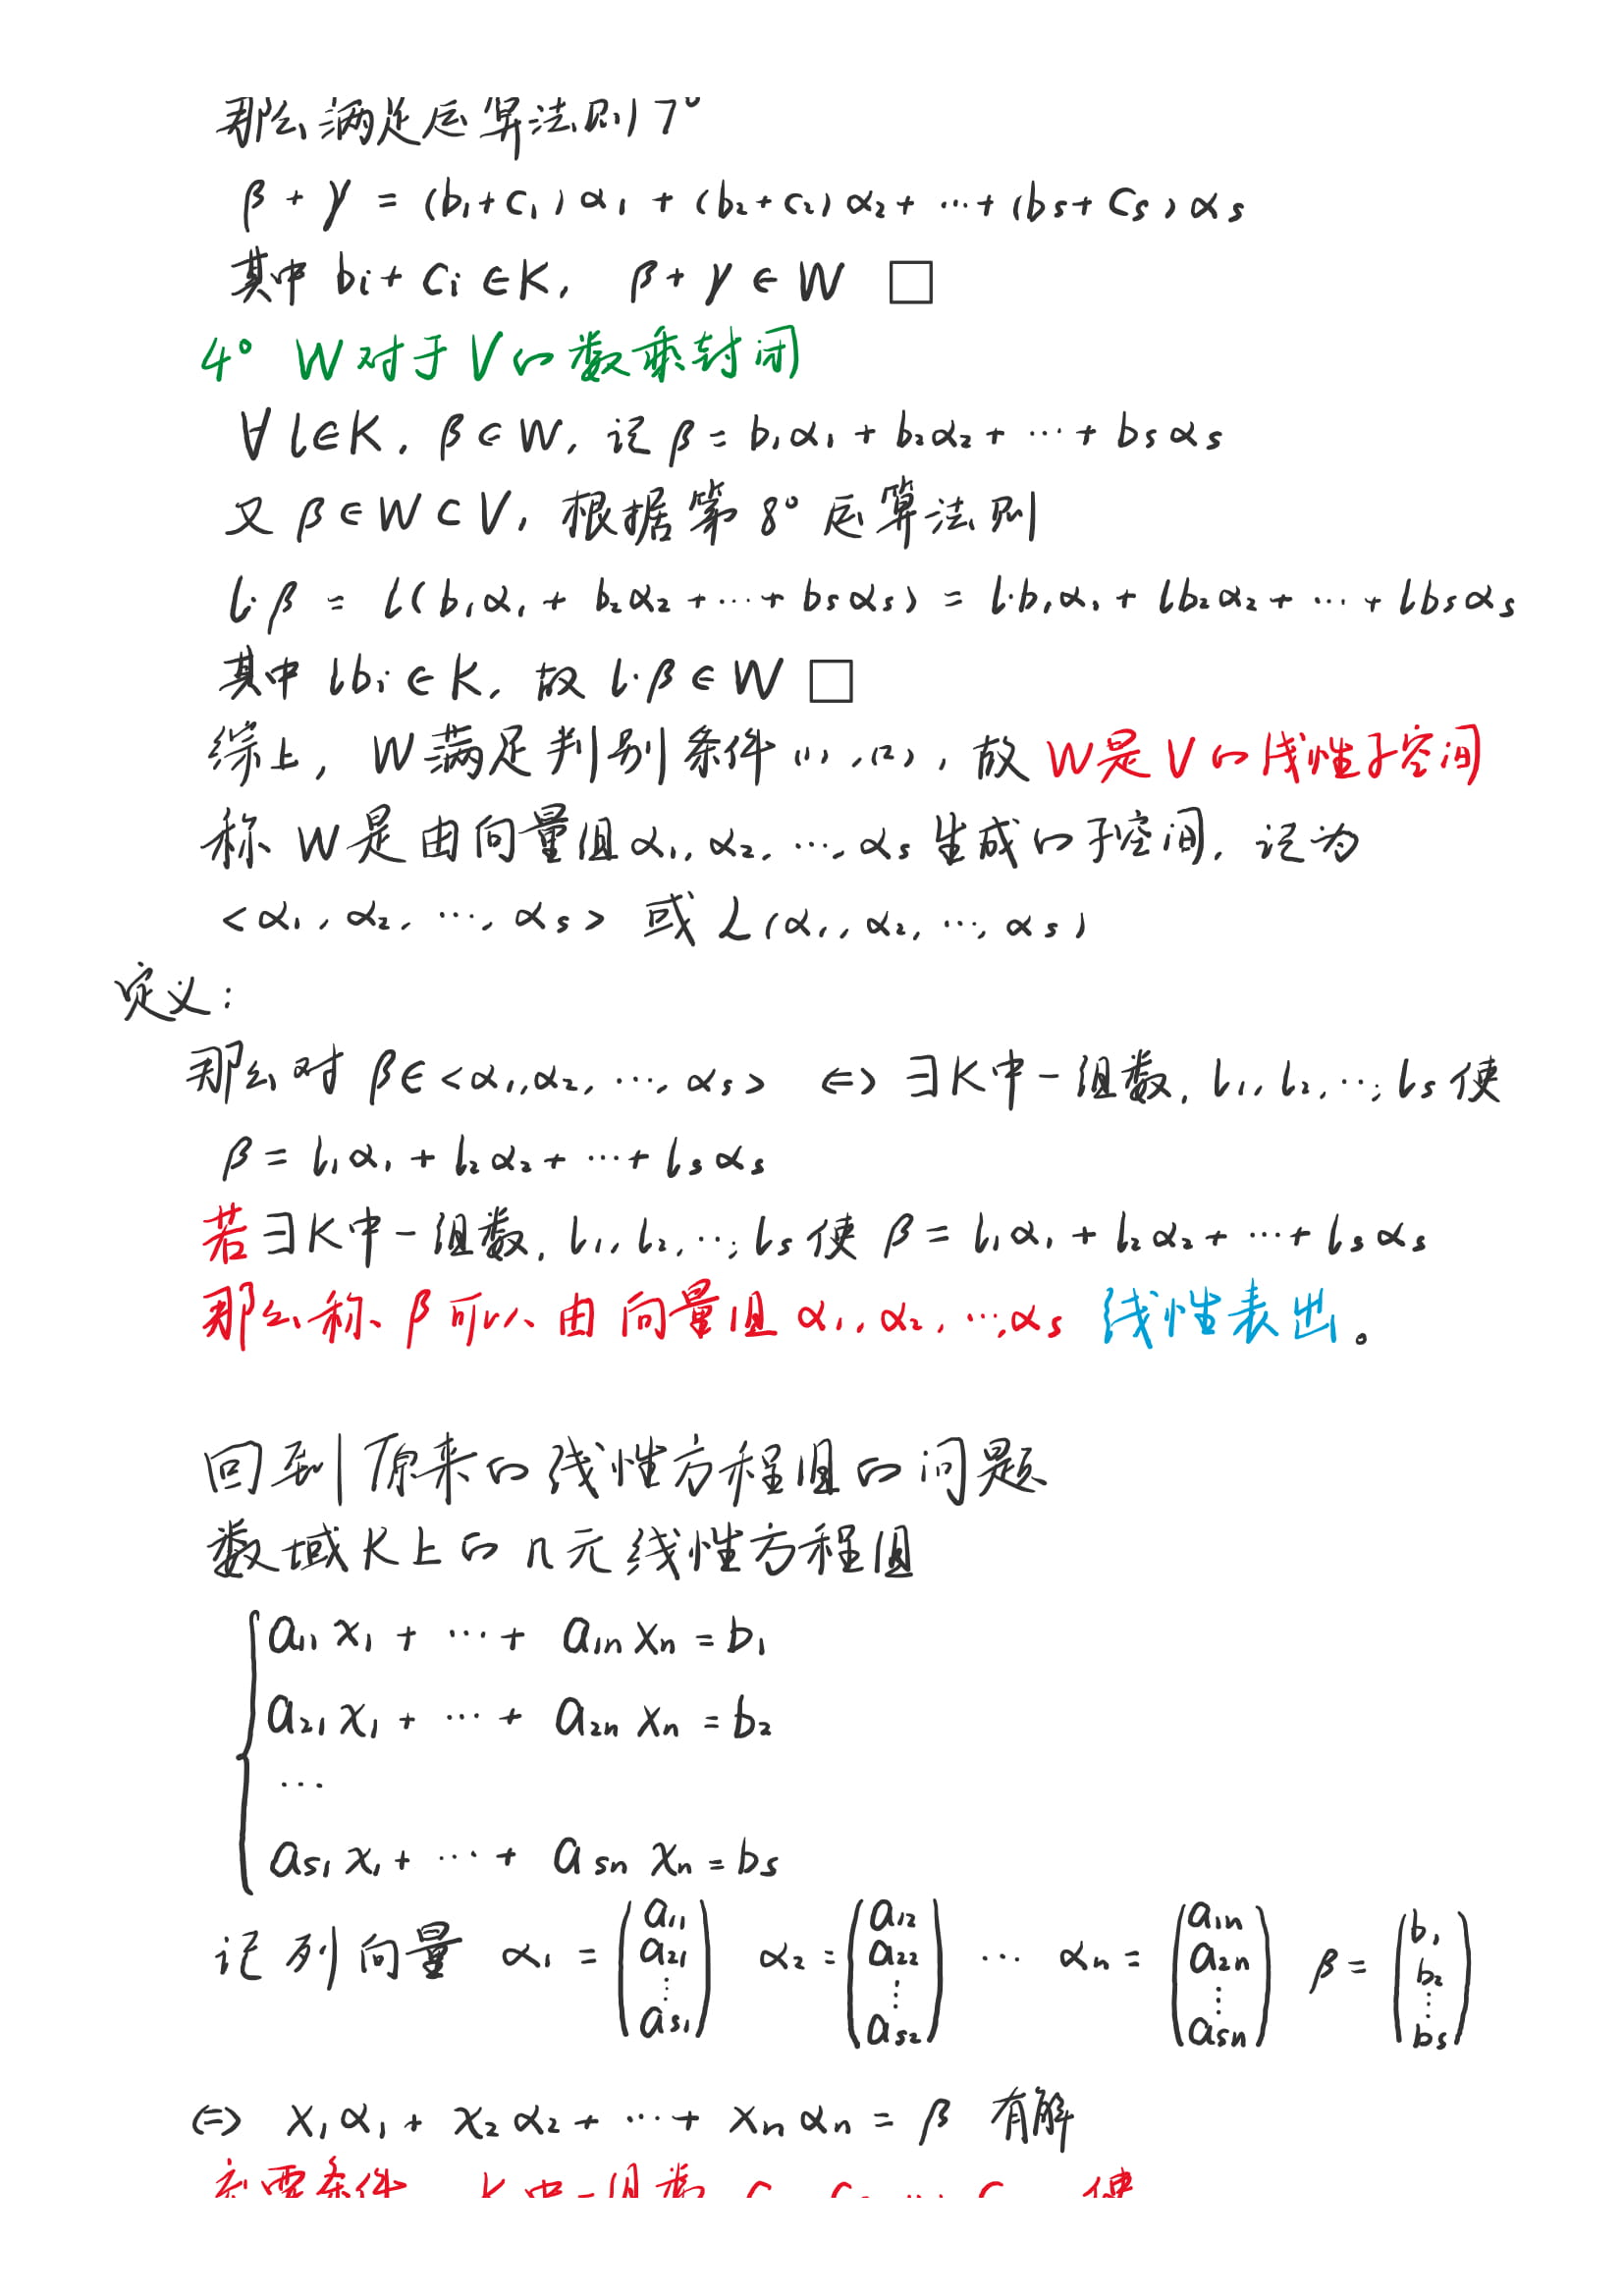 那么满足运算法则7°
β + γ = (b₁+c₁)α₁ + (b₂+c₂)α₂ + ⋯ + (bₛ+cₛ)αₛ
其中 bᵢ + cᵢ ∈ K, β + γ ∈ W □
4° W对于V的数乘封闭
∀ l ∈ K, β ∈ W, 记 β = b₁α₁ + b₂α₂ + ⋯ + bₛαₛ
又 β ∈ W ⊂ V, 根据第8°运算法则
l·β = l(b₁α₁ + b₂α₂ + ⋯ + bₛαₛ) = l·b₁α₁ + lb₂α₂ + ⋯ + lbₛαₛ
其中 lbᵢ ∈ K, 故 l·β ∈ W □
综上, W满足判别条件(1),(2), 故W是V的线性子空间
称W是由向量组α₁, α₂, ⋯, αₛ生成的子空间, 记为
<α₁, α₂, ⋯, αₛ> 或 L(α₁, α₂, ⋯, αₛ)
定义:
那么对 β∈<α₁, α₂, ⋯, αₛ> ⇔ ∃K中一组数, l₁, l₂, ⋯, lₛ使
β = l₁α₁ + l₂α₂ + ⋯ + lₛαₛ
若∃K中一组数, l₁, l₂, ⋯, lₛ使 β = l₁α₁ + l₂α₂ + ⋯ + lₛαₛ
那么称β可以由向量组α₁, α₂, ⋯, αₛ 线性表出。
回到原来的线性方程组的问题
数域K上的n元线性方程组
a₁₁x₁ + ⋯ + a₁ₙxₙ = b₁
a₂₁x₁ + ⋯ + a₂ₙxₙ = b₂
⋯
aₛ₁x₁ + ⋯ + aₛₙxₙ = bₛ
记列向量 α₁ = (a₁₁ a₂₁ ⋮ aₛ₁) α₂ = (a₁₂ a₂₂ ⋮ aₛ₂) ⋯ αₙ = (a₁ₙ a₂ₙ ⋮ aₛₙ) β = (b₁ b₂ ⋮ bₛ)
⇔ x₁α₁ + x₂α₂ + ⋯ + xₙαₙ = β 有解